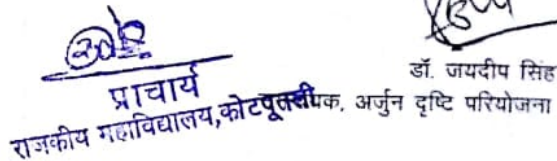 प्राचार्य
राजकीय महाविद्यालय, कोटपूतली
डॉ. जयदीप सिंह
अर्जुन दृष्टि परियोजना